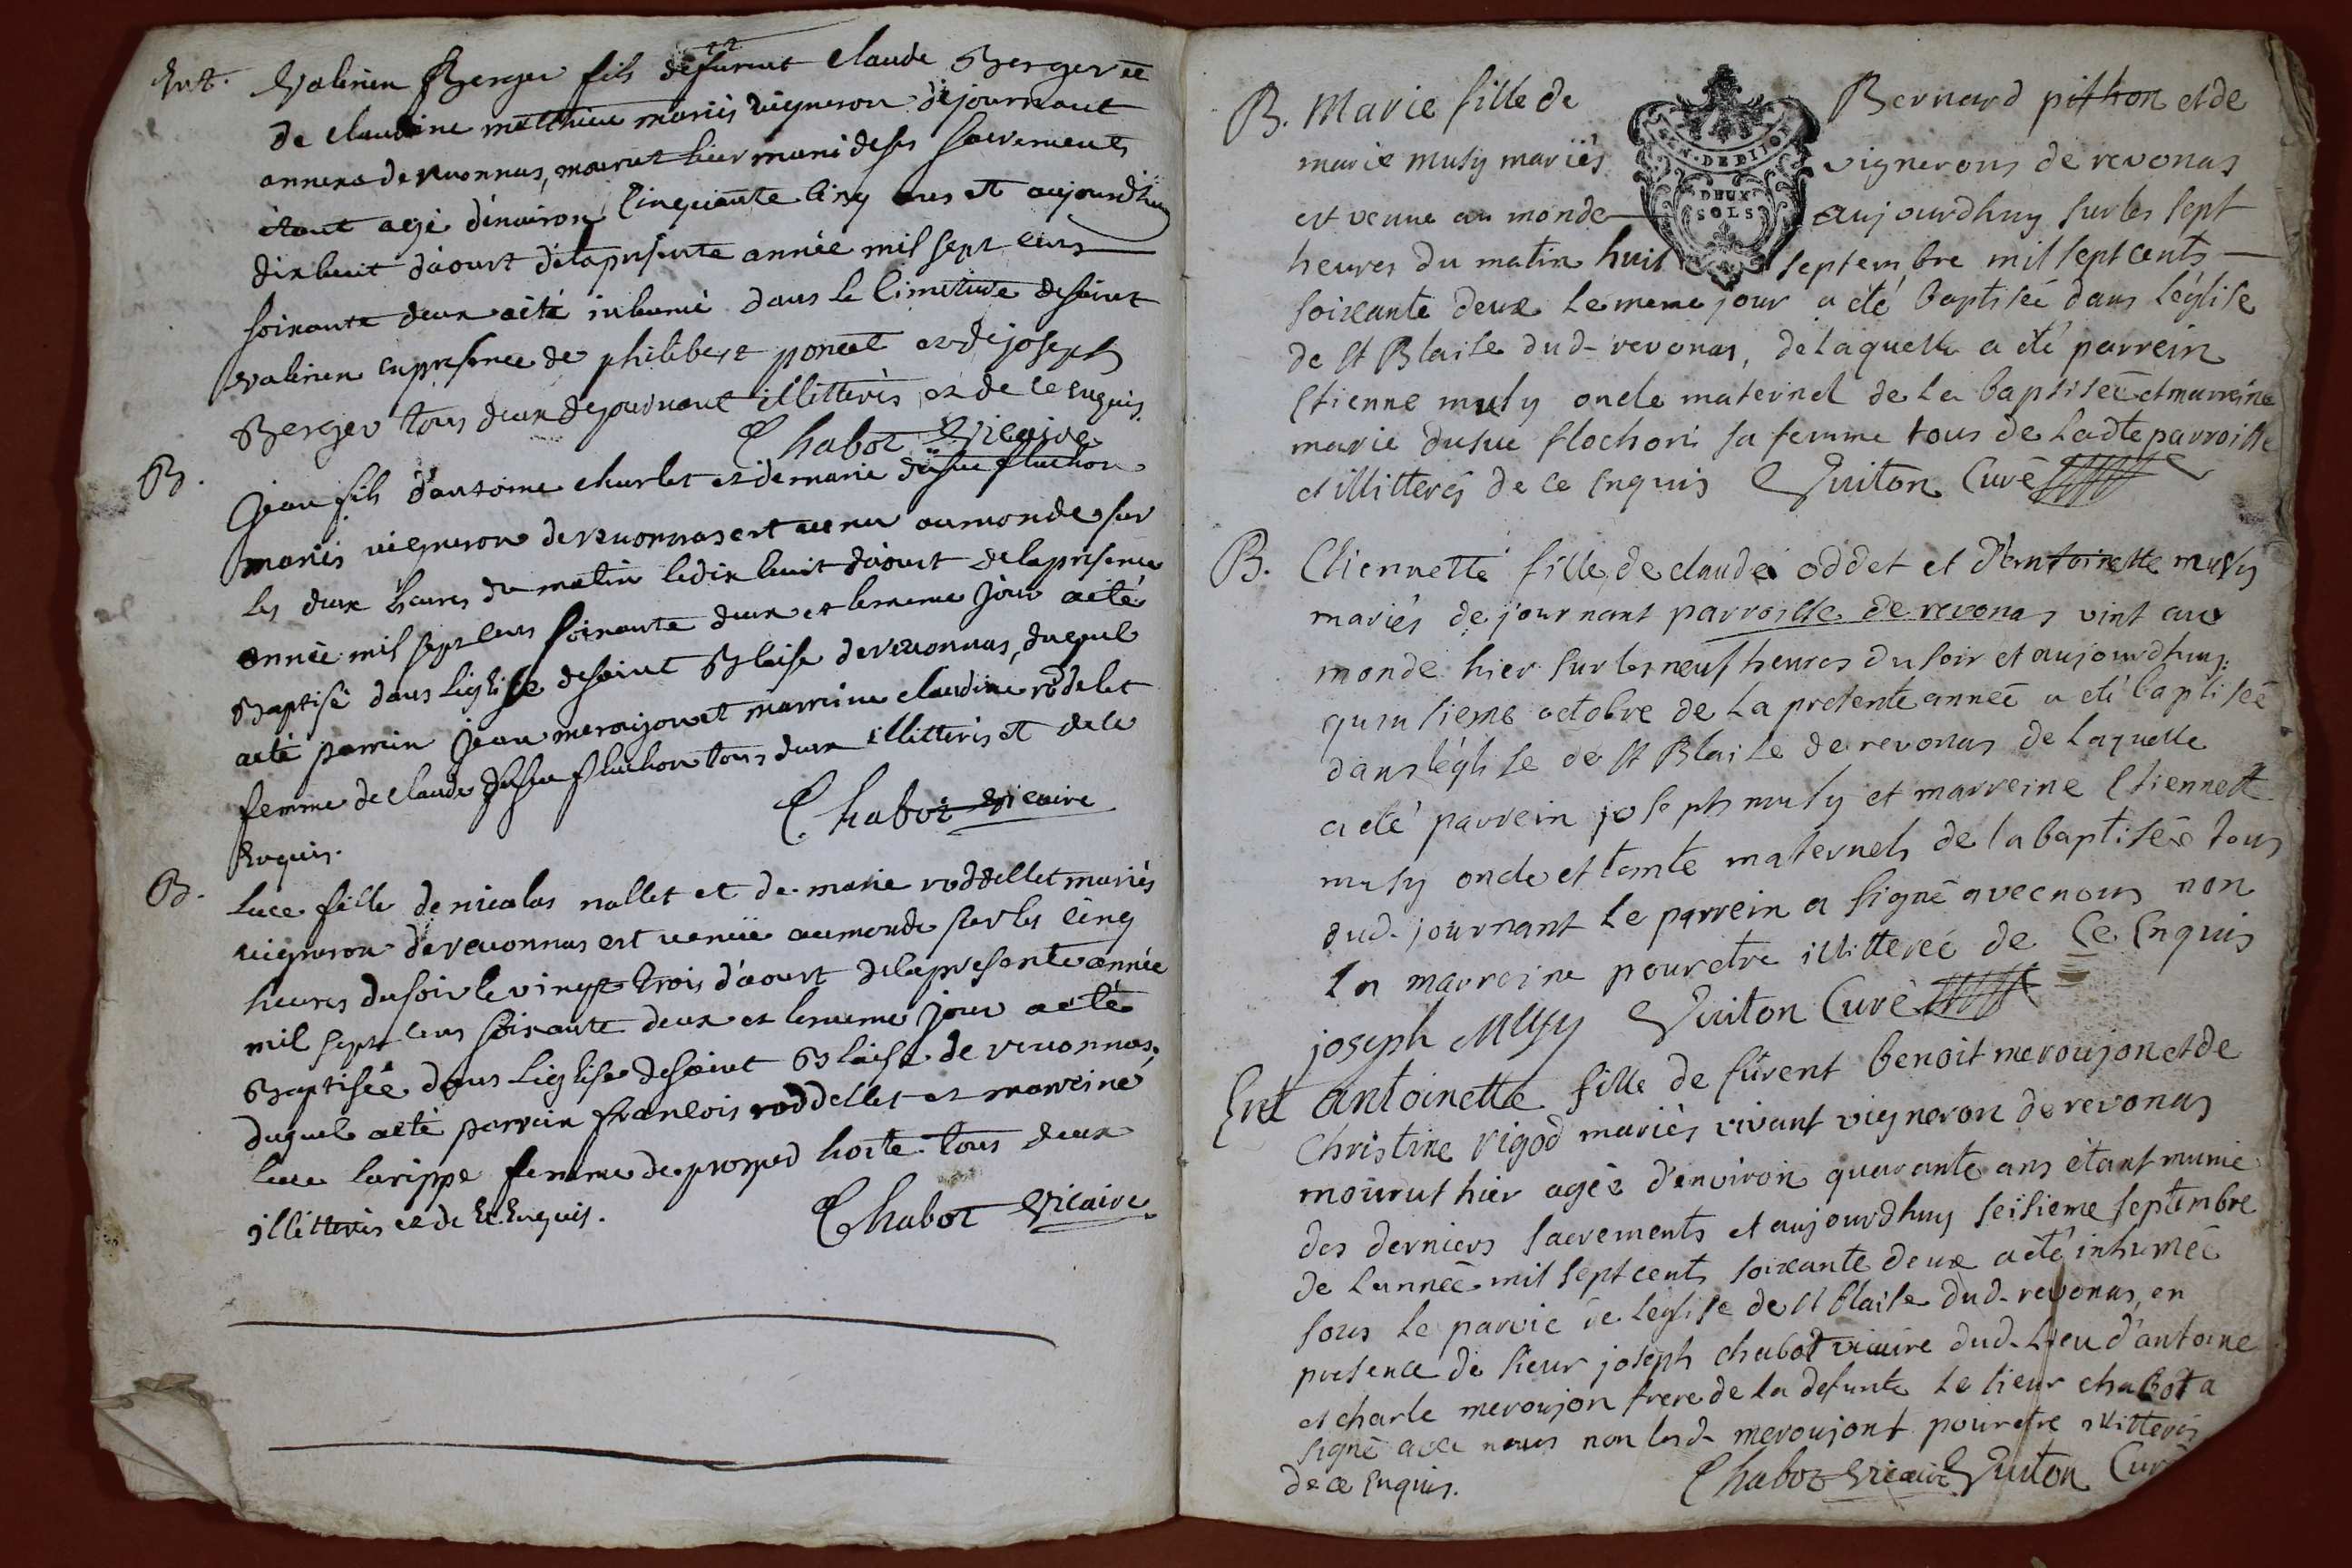 Ent. Valerien Berger fils défunt claude Berger et
de claudine matthieu mariés vigneron de journant
annexe de revonnas, mourut hier muni de ses sacrements
étant agé d'environ cinquante cinq ans et aujourdhuy
dix huit d'aoust de la presente année mil sept cens
soixante deux a été inhumé dans le cimetiere de saint
valerien en presence de philibert poncet et de joseph
Berger tous deux de journant illitterés et de ce enquis.
Chabot Vicaire
B. Jean fils d'antoine charlet et de marie dusue fluchon
mariés vigneron de revonnas est venu au monde sur
les deux heures du matin le dix huit d'aoust de la presente
année mil sept cens soixante deux et le meme jour a été
Baptisé dans l'eglise de saint Blaise de revonnas, duquel
a été parrain Jean meroujon et marraine claudine rodelet
femme de claude dusue fluchon tous deux illitterés et de ce
Enquis. Chabot Vicaire
B. Luce fille de nicolas nallet et de marie roddellet mariés
vigneron de revonnas est venüe au monde sur les cinq
heures du soir le vingt trois d'aoust de la presente année
mil sept cens soixante deux et le meme jour a été
Baptisée dans l'eglise de saint Blaise de revonnas,
duquel a été parrain francois roddellet et marreine
luce larippe femme de hoste tous deux
illitterés et de ce Enquis. Chabot Vicaire
B. Marie fille de Bernard pithon et de
marie musy mariés vignerons de revonas
est venue au monde aujourdhuy sur les sept
heures du matin huit septembre mil sept cents
soixante deux le meme jour a été baptisée dans l'église
de St Blaise dud. revonas, de laquelle a été parrein
Etienne musy oncle maternel de la baptisée et marreine
marie dusue flochon sa femme tous de ladte parroisse
et illitterés de ce enquis Guiton Curé
GEN. DE DIJON
DEUX
SOLS
B. Etiennette fille de claude oddet et d'antoinette musy
mariés de journant parroisse de revonas vint au
monde hier sur les neuf heures du soir et aujourdhuy
quinsieme octobre de la presente année a été baptisée
dans l'église de St Blaise de revonas de laquelle
a été parrein joseph musy et marreine Etiennette
musy oncle et tante maternels de la baptisée tous
dud. journant le parrein a signé avec nous non
la marreine pour etre illitterée de ce Enquis
joseph Musy Guiton Curé
Ent Antoinette fille de furent benoit meroujon et de
Christine rigod mariés vivant vigneron de revonas
mourut hier agée d'environ quarante ans étant munie
des derniers sacrements et aujourdhuy seisieme septembre
de l'année mil sept cents soixante deux a été inhumée
sous le parvie de l'eglise de St blaise dud. revonas, en
presence de sieur joseph chabot vicaire dud. lieu d'antoine
et charle meroujon frere de la defunte le sieur chabot a
signé avec nous non lesd. meroujont pour etre illitterés
de ce enquis. Chabot Vicaire Guiton Curé